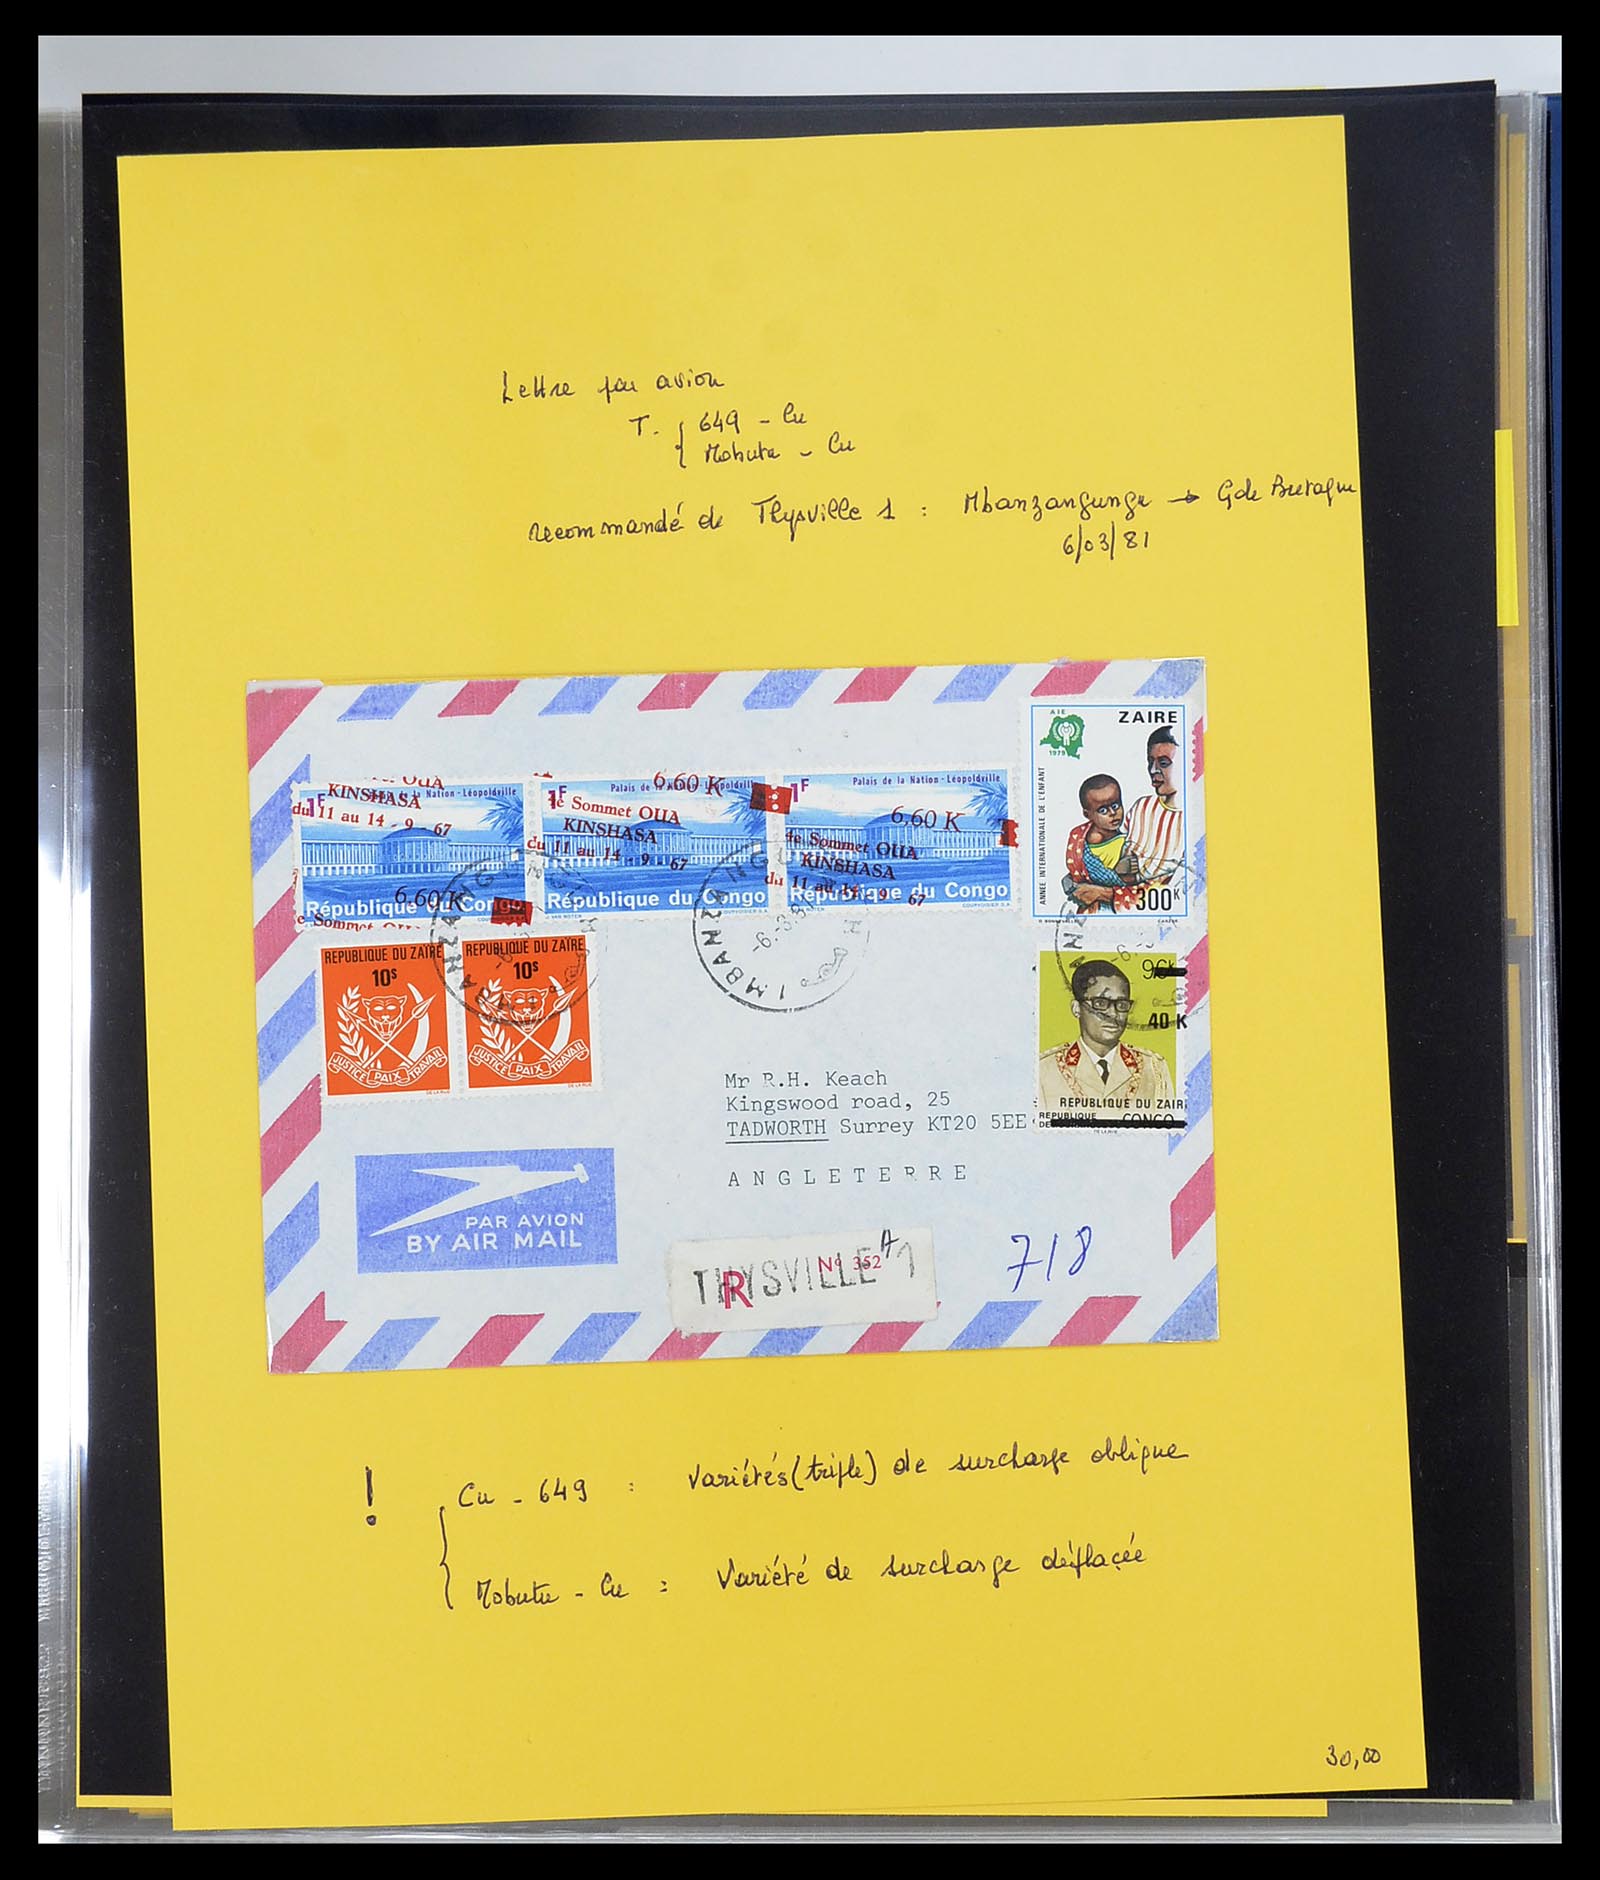 Lettre par avion
T. { 649 - Cu
Mobutu - Cu
recommandé de Thysville 1 : Mbanzangungu → Gde Bretagne
6/03/81
OUA
KINSHASA
du 11 au 14 - 9 - 67
1F
la Nation - Léopoldville
6,60K
République du Congo
e Sommet OUA
6,60 K
1F
Palais de la Nation - Léopoldville
4e Sommet OUA
KINSHASA
du 11 au 14 - 9 - 67
République du Congo
1F
Palais de la Nation - Léopoldville
6,60 K
4e Sommet OUA
KINSHASA
du 11 au 14 - 9 - 67
République du Congo
COURVOISIER S.A.
AIE
1979
ZAIRE
ANNEE INTERNATIONALE DE L'ENFANT
300K
REPUBLIQUE DU ZAIRE
10s
JUSTICE PAIX TRAVAIL
DE LA RUE
REPUBLIQUE DU ZAIRE
10s
JUSTICE PAIX TRAVAIL
DE LA RUE
MBANZA NGUNGU
1 MBANZA NGU
-6.-3.
40 K
REPUBLIQUE DU ZAIR
REPUBLIQUE
CONGO
Mr R.H. Keach
Kingswood road, 25
TADWORTH Surrey KT20 5EE
ANGLETERRE
PAR AVION
BY AIR MAIL
R
THYSVILLE 1
No 352
A
718
! { Cu - 649 : Variétés (triple) de surcharge oblique
Mobutu - Cu : Variété de surcharge déplacée
30,00